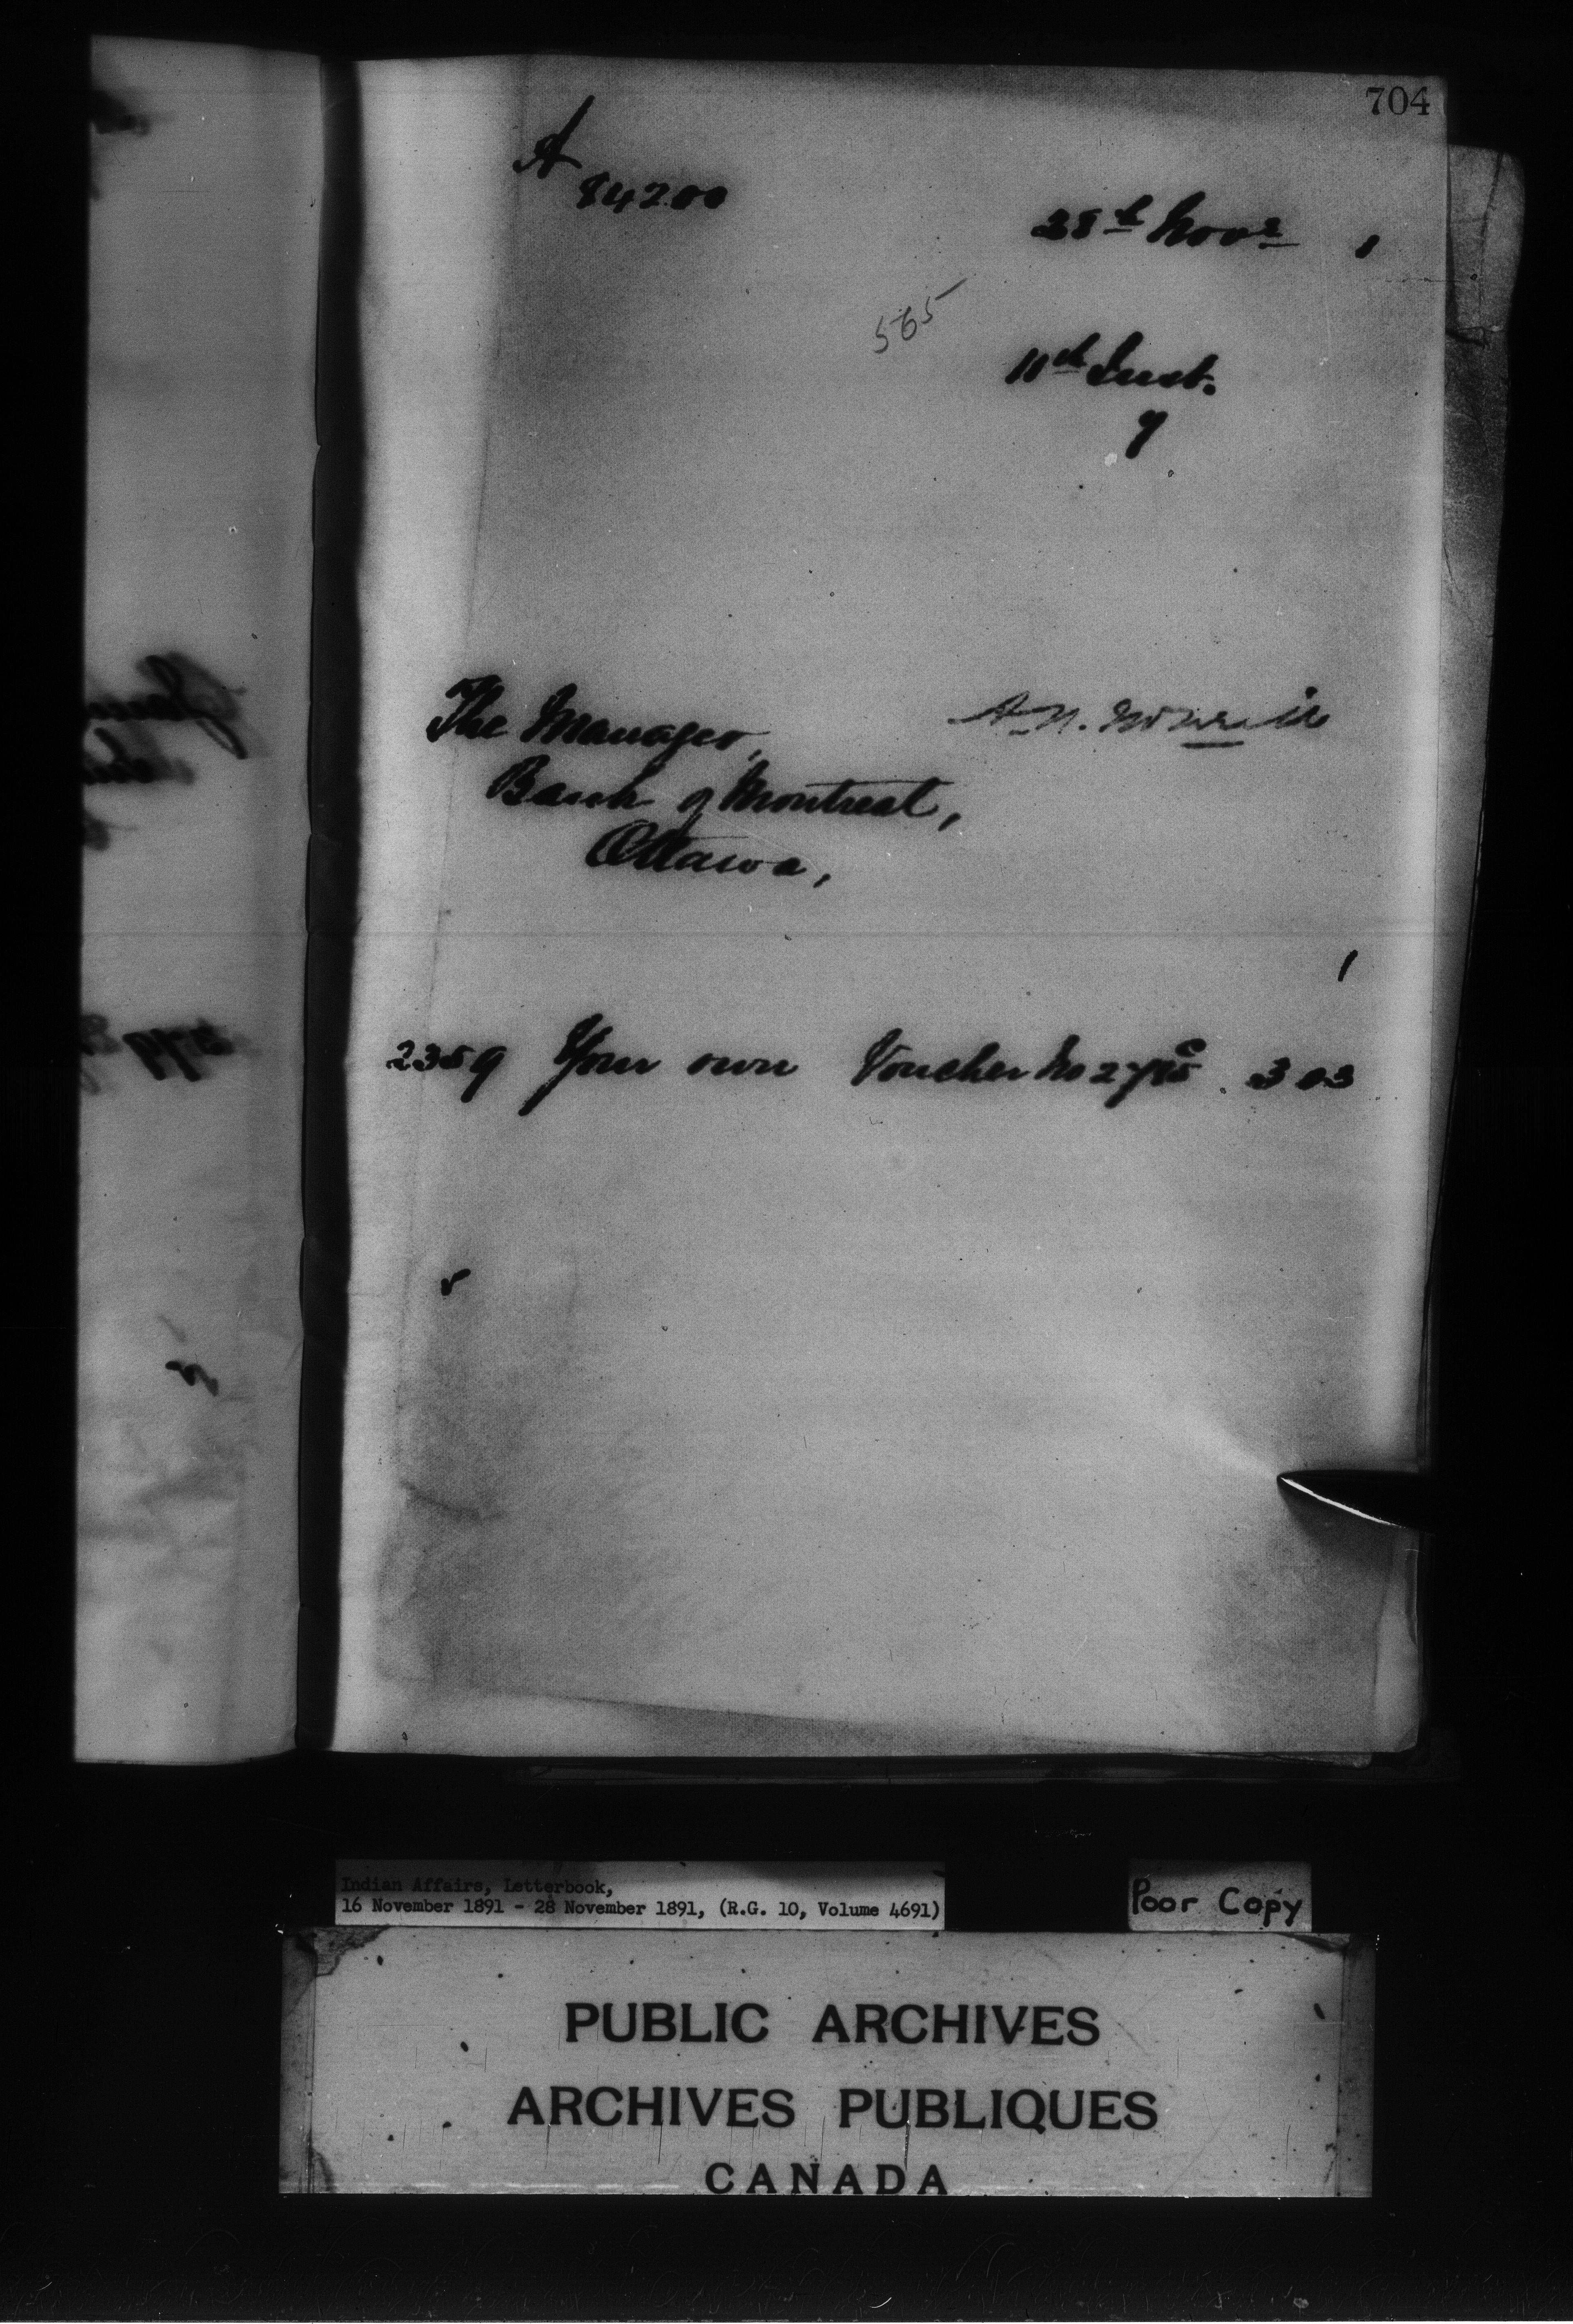 704
A
84200
28th Novr 1
565
11th Inst.
9
The Manager,
Bank of Montreal,
Ottawa,
A. N.
1
2359 Your own Voucher No 2795 . 3 03
Indian Affairs, Letterbook,
16 November 1891 - 28 November 1891, (R.G. 10, Volume 4691)
Poor Copy
PUBLIC ARCHIVES
ARCHIVES PUBLIQUES
CANADA